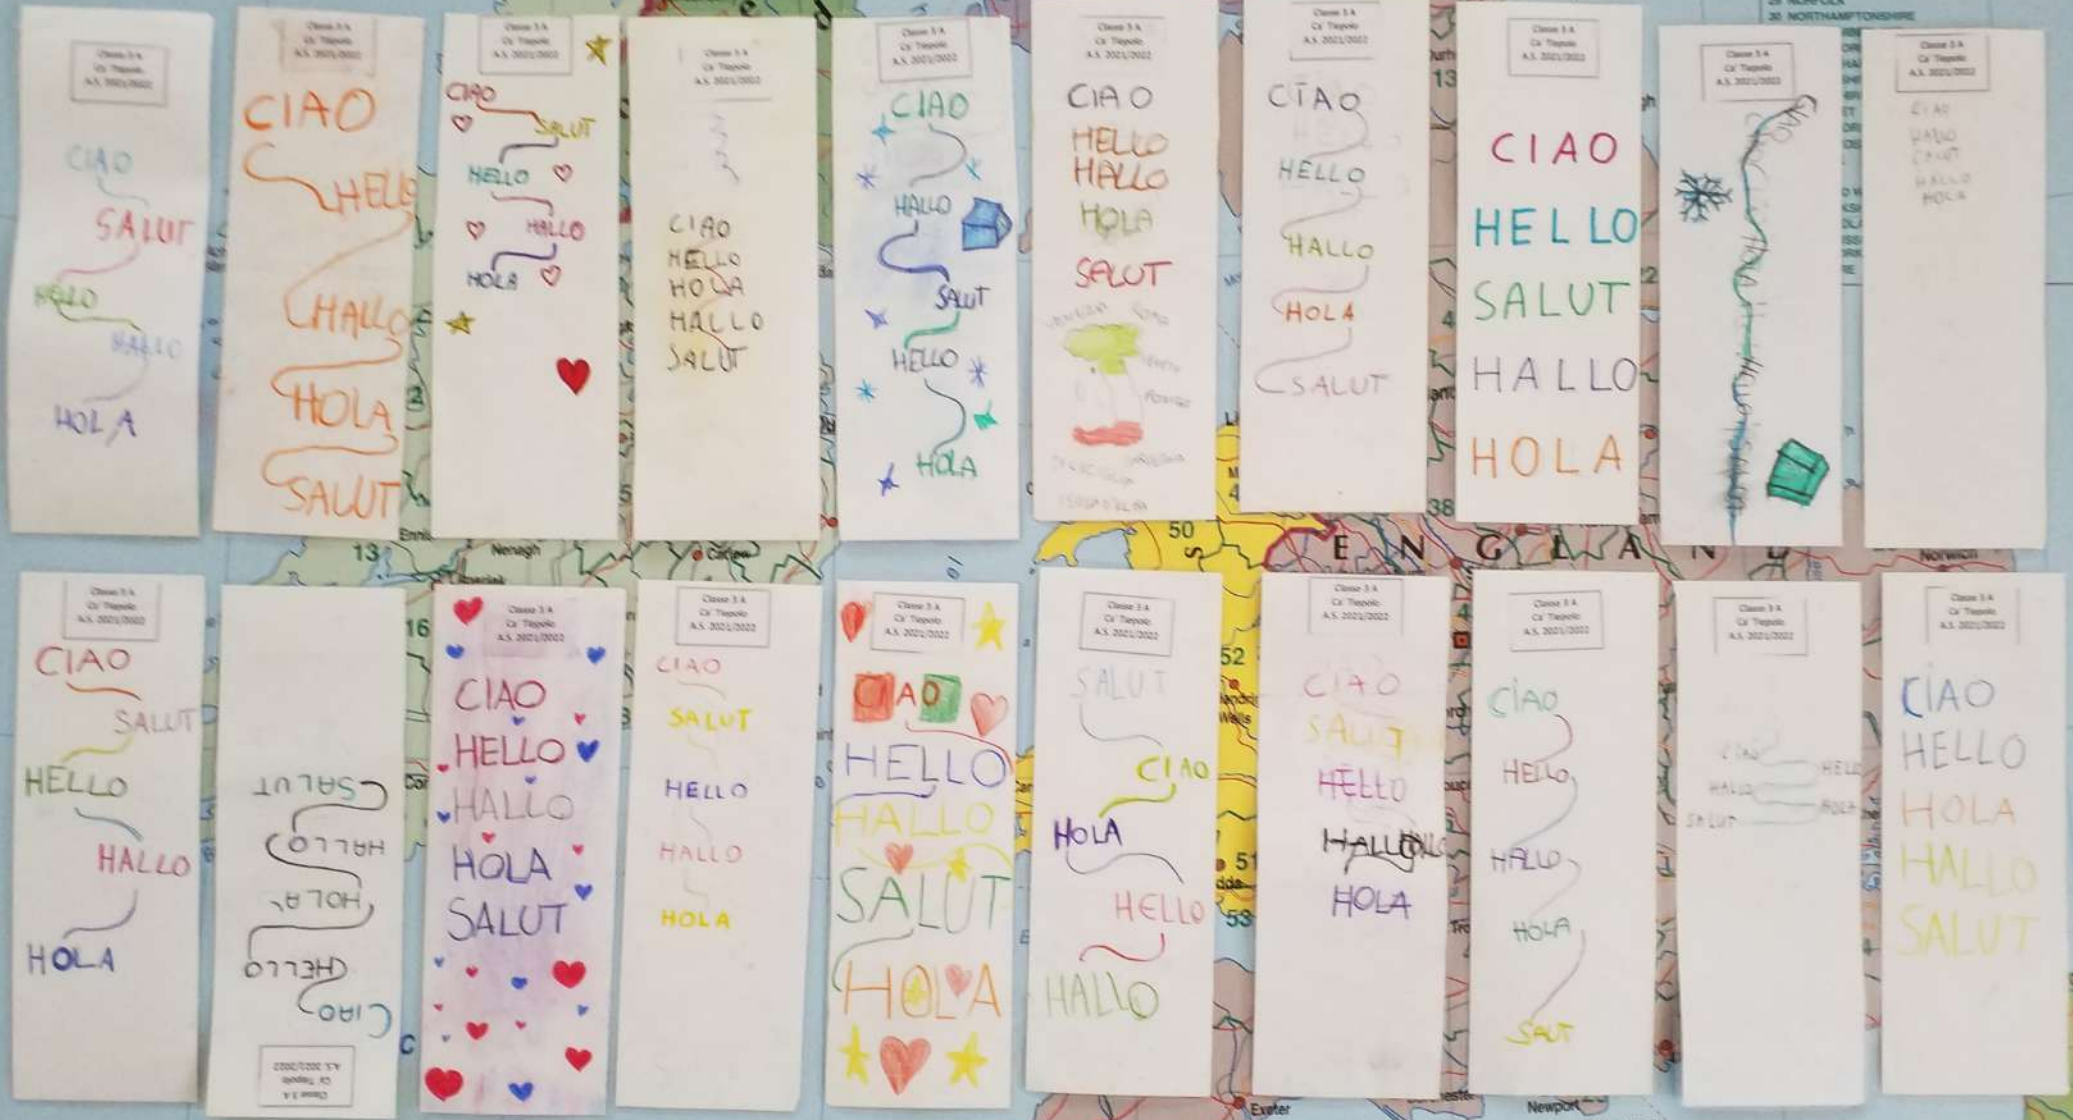 Classe 3 A
Ca' Tiepolo
A.S. 2021/2022
CIAO
SALUT
HELLO
HALLO
HOLA
Classe 3 A
Ca' Tiepolo
A.S. 2021/2022
CIAO
HELLO
HALLO
HOLA
SALUT
Classe 3 A
Ca' Tiepolo
A.S. 2021/2022
CIAO
SALUT
HELLO
HALLO
HOLA
Classe 3 A
Ca' Tiepolo
A.S. 2021/2022
CIAO
HELLO
HOLA
HALLO
SALUT
Classe 3 A
Ca' Tiepolo
A.S. 2021/2022
CIAO
HALLO
SALUT
HELLO
HOLA
Classe 3 A
Ca' Tiepolo
A.S. 2021/2022
CIAO
HELLO
HALLO
HOLA
SALUT
Classe 3 A
Ca' Tiepolo
A.S. 2021/2022
CIAO
HELLO
HALLO
HOLA
SALUT
Classe 3 A
Ca' Tiepolo
A.S. 2021/2022
CIAO
HELLO
SALUT
HALLO
HOLA
Classe 3 A
Ca' Tiepolo
A.S. 2021/2022
CIAO
Classe 3 A
Ca' Tiepolo
A.S. 2021/2022
CIAO
HALLO
HOLA
30 NORTHAMPTONSHIRE
13
Nenagh
Carlow
50
ENGLAN
38
Norwich
Classe 3 A
Ca' Tiepolo
A.S. 2021/2022
CIAO
SALUT
HELLO
HALLO
HOLA
Classe 3 A
Ca' Tiepolo
A.S. 2021/2022
CIAO
HELLO
HOLA
HALLO
SALUT
Classe 3 A
Ca' Tiepolo
A.S. 2021/2022
CIAO
HELLO
HALLO
HOLA
SALUT
Classe 3 A
Ca' Tiepolo
A.S. 2021/2022
CIAO
SALUT
HELLO
HALLO
HOLA
Classe 3 A
Ca' Tiepolo
A.S. 2021/2022
CIAO
HELLO
HALLO
SALUT
HOLA
Classe 3 A
Ca' Tiepolo
A.S. 2021/2022
SALUT
CIAO
HOLA
HELLO
HALLO
Classe 3 A
Ca' Tiepolo
A.S. 2021/2022
CIAO
SALUT
HELLO
HALLO
HOLA
Classe 3 A
Ca' Tiepolo
A.S. 2021/2022
CIAO
HELLO
HALLO
HOLA
SAUT
Classe 3 A
Ca' Tiepolo
A.S. 2021/2022
CIAO
HELLO
HALLO
HOLA
SALUT
Classe 3 A
Ca' Tiepolo
A.S. 2021/2022
CIAO
HELLO
HOLA
HALLO
SALUT
16
52
Wells
51
53
Exeter
Newport